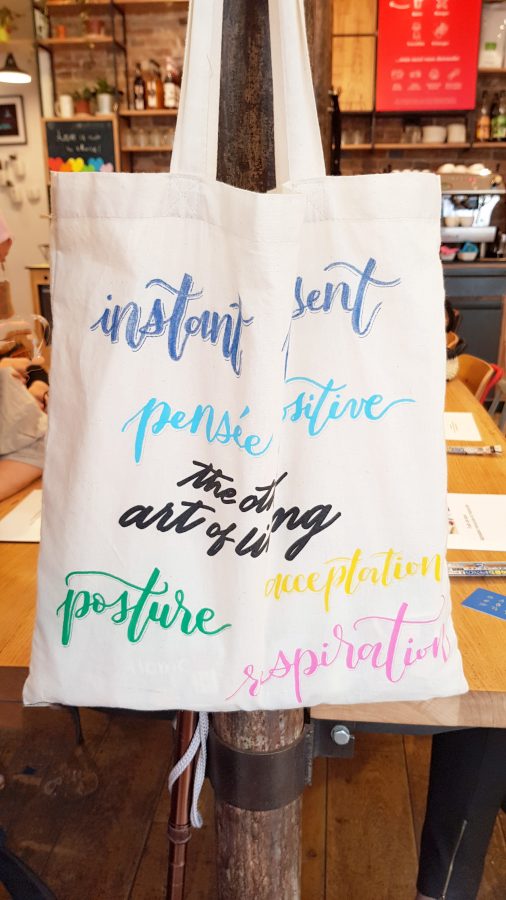 instant sent
pensée ositive
the oth
art of living
posture
acceptation
respiration